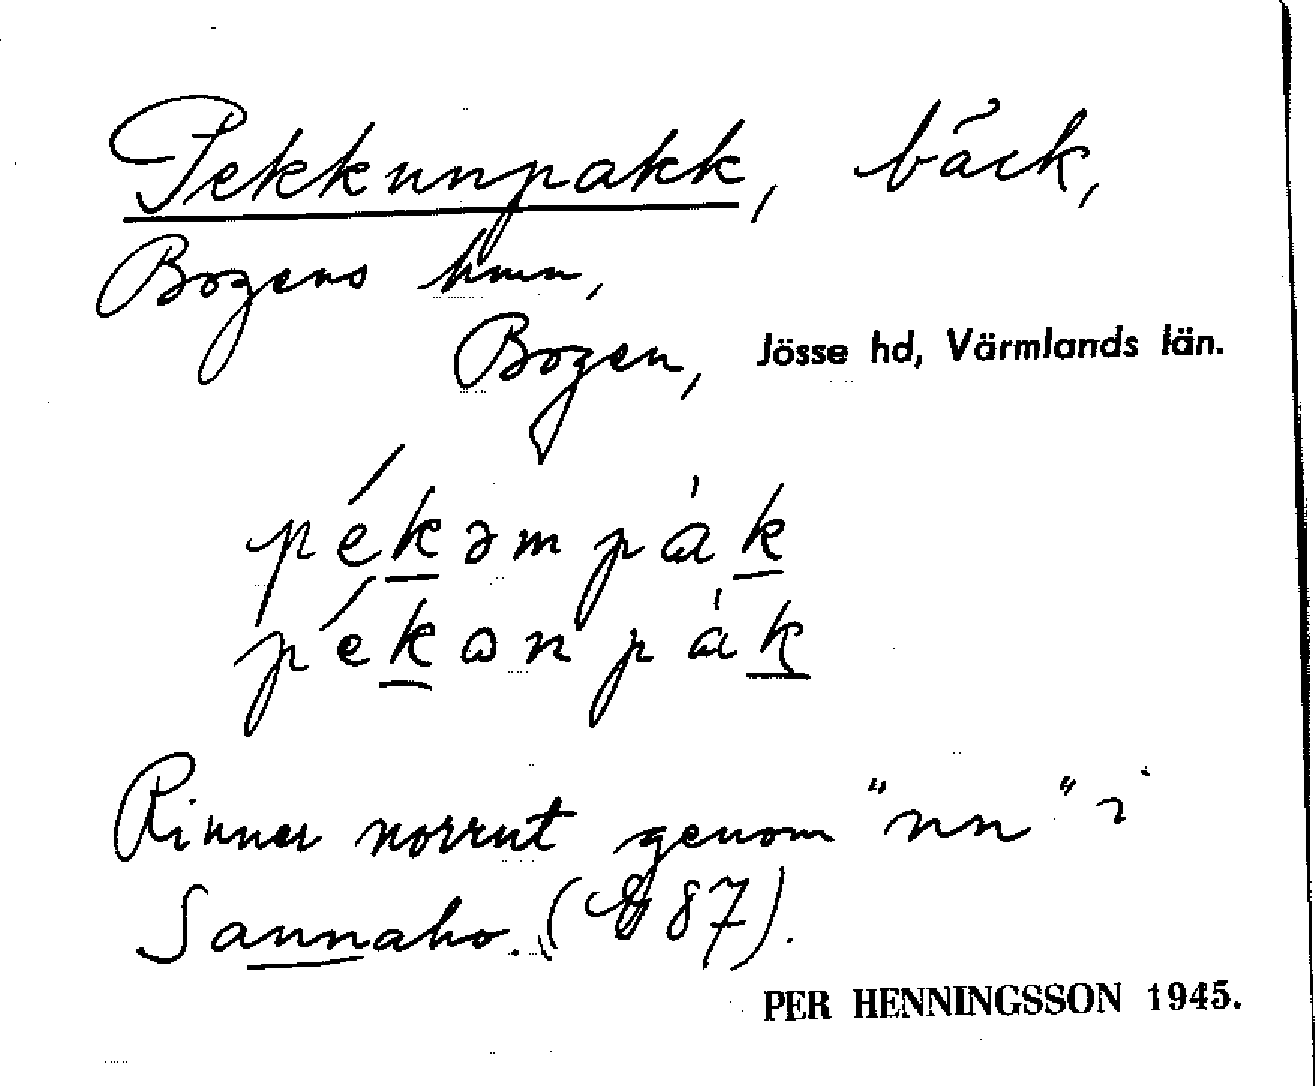 Pekkunpakk, bäck,
Bogens hmn,
Bogen, Jösse hd, Värmlands län.
pékəmpàk
pékonpàk
Rinner norrut genom "nn" i
Sannaho. (E 87).
PER HENNINGSSON 1945.